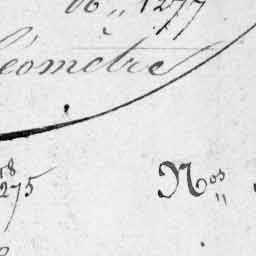 N° „ 1277
Géomètre
rs
275 Nos „